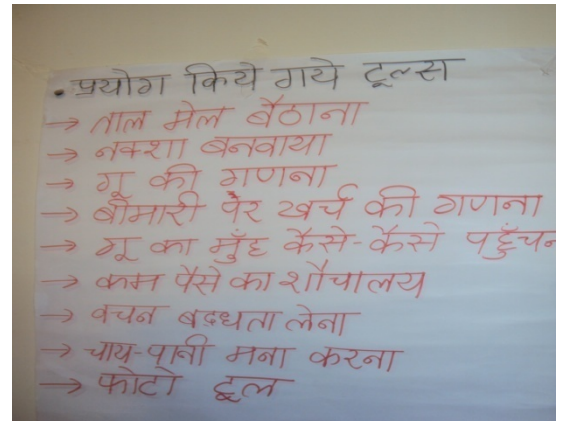 • प्रयोग किये गये टूल्स
→ ताल मेल बैठाना
→ नक्शा बनवाया
→ गू की गणना
→ बीमारी पर खर्च की गणना
→ गू का मुँह कैसे-कैसे पहुँचन
→ कम पैसे का शौचालय
→ वचन बद्धता लेना
→ चाय-पानी मना करना
→ फोटो